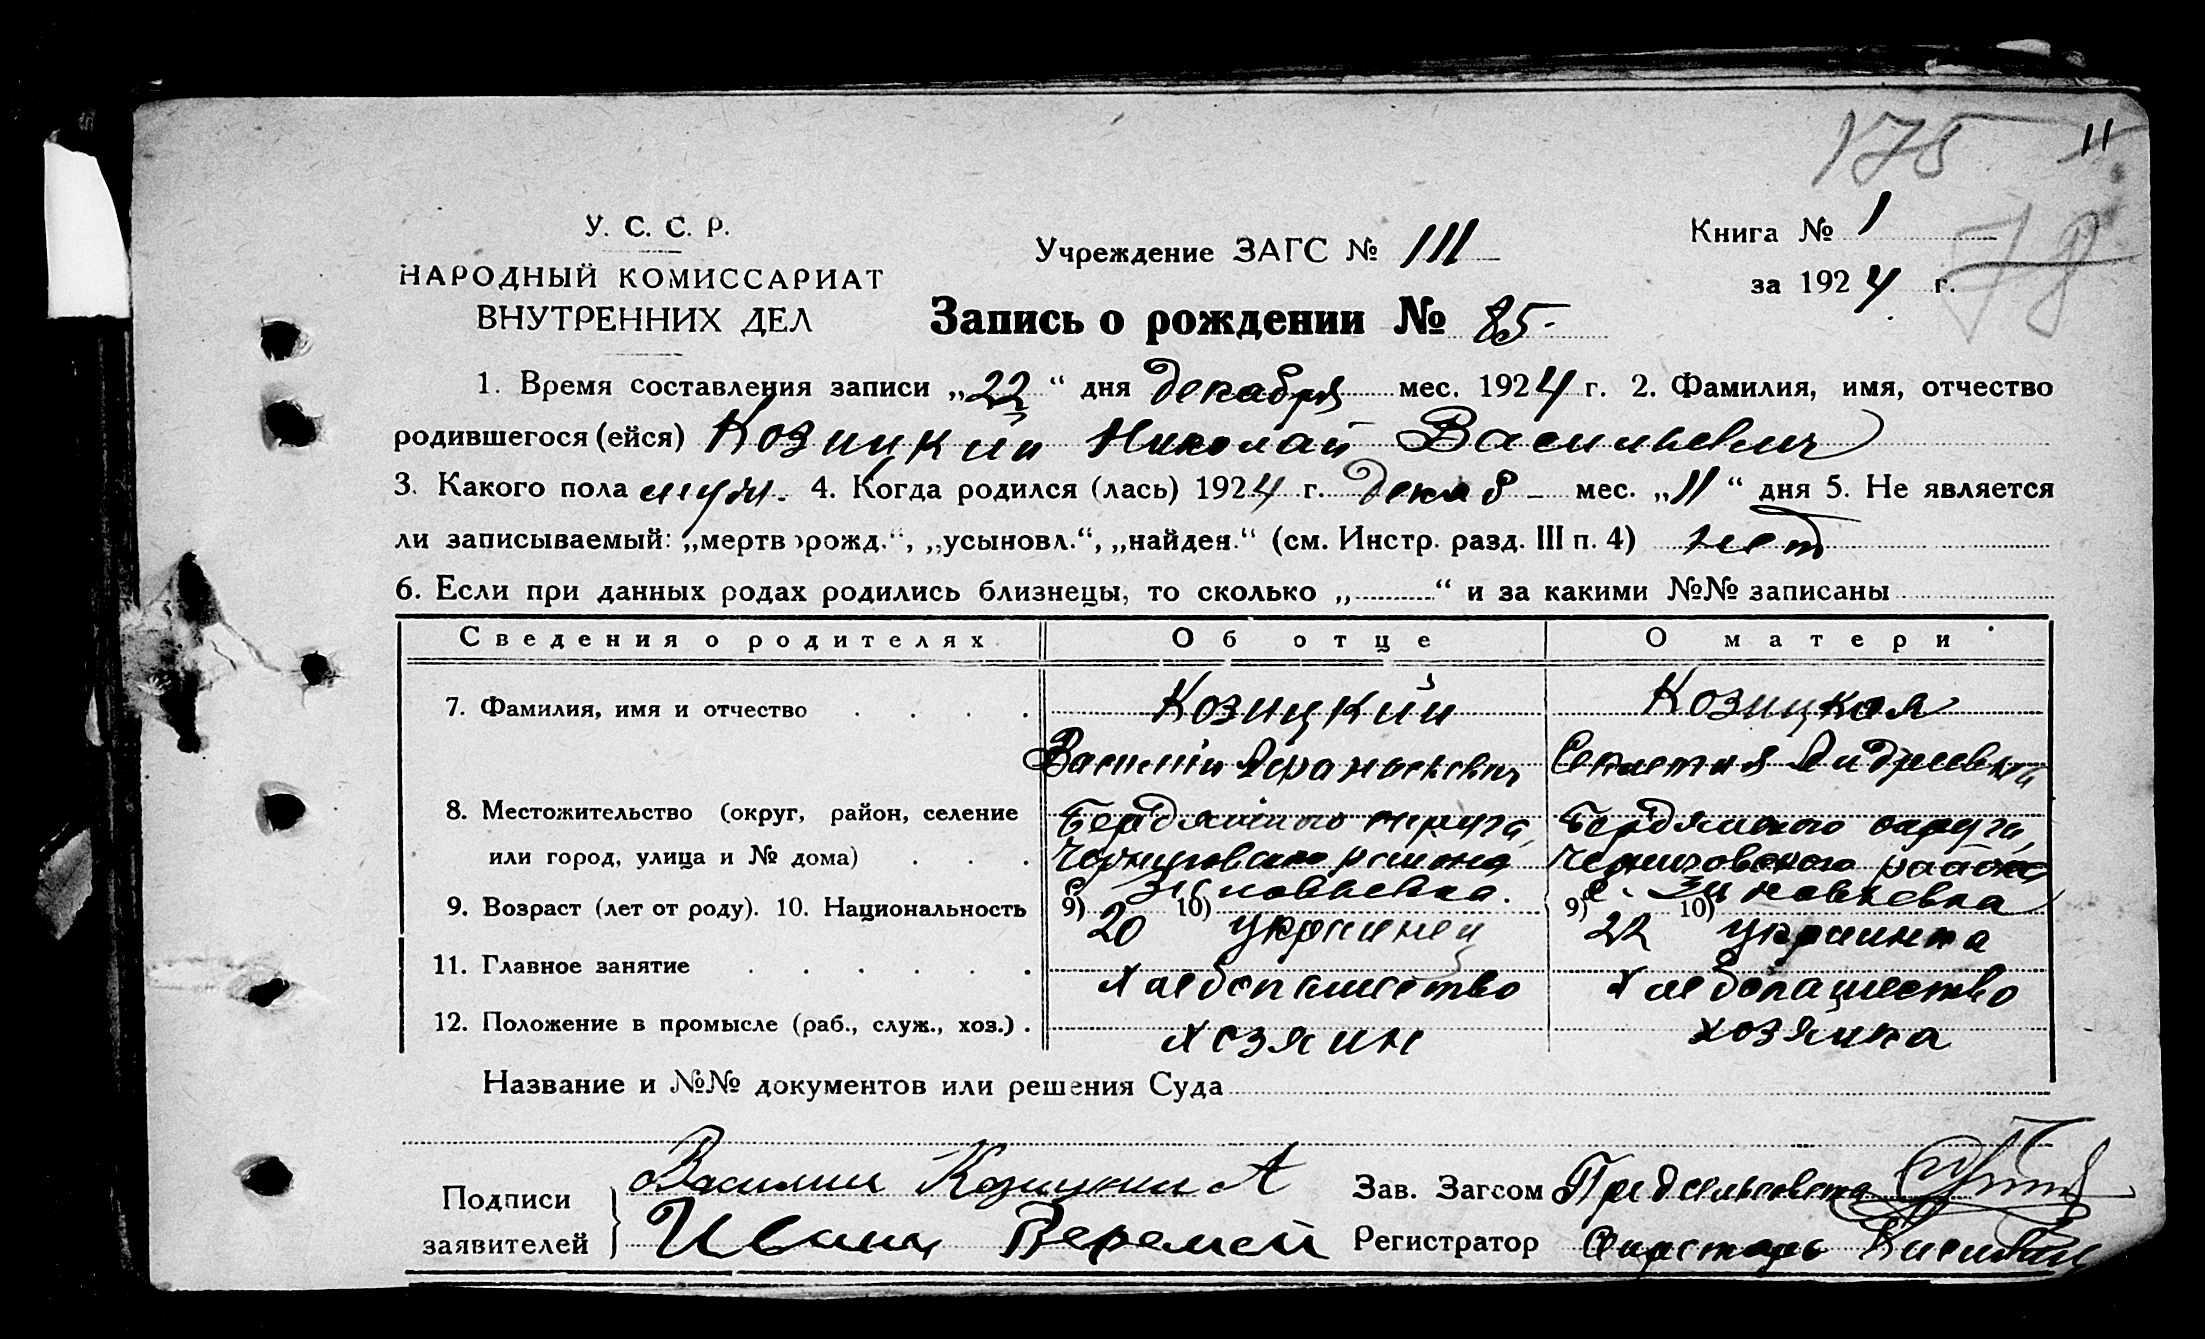 175 11
У. С. С. Р.
Книга № 1
78
Учреждение ЗАГС № 111
НАРОДНЫЙ КОМИССАРИАТ
за 1924 г.
ВНУТРЕННИХ ДЕЛ
Запись о рождении № 85.
1. Время составления записи „22“ дня декабря мес. 1924 г. 2. Фамилия, имя, отчество
родившегося (ейся) Козицкий Николай Васильевич
3. Какого пола муж. 4. Когда родился (лась) 1924 г. декаб мес. „11“ дня 5. Не является
ли записываемый: „мертворожд.“, „усыновл.“, „найден.“ (см. Инстр. разд. III п. 4) нет
6. Если при данных родах родились близнецы, то сколько „..........“ и за какими №№ записаны
Сведения о родителях Об отце О матери
7. Фамилия, имя и отчество . . . . Козицкий Козицкая
Василий Афанасьевич Андреевна
8. Местожительство (округ, район, селение Бердянского округа, Бердянского округа,
или город, улица и № дома) . . . Черниговского района Черниговского района
с. Зиновьевка. с. Зиновьевка
9. Возраст (лет от роду). 10. Национальность 9) 20 10) украинец 9) 22 10) украинка
11. Главное занятие . . . . . . хлебопашество хлебопашество
12. Положение в промысле (раб., служ., хоз.) . хозяин хозяика
Название и №№ документов или решения Суда
Подписи Василий Козицкий А Зав. Загсом Предсельсовета
заявителей Иван Веремей Регистратор Секретарь